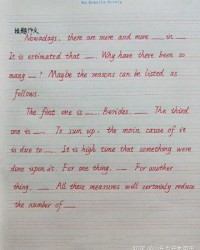 推题作文
Nowadays, there are more and more __ in __
It is estimated that __. Why have there been so
many __? Maybe the reasons can be listed as
follows.
The first one is __. Besides, __. The third
one is __. To sum up, the main cause of it
is due to __. It is high time that something were
done upon it. For one thing, __. For another
thing, __. All these measures will certainly reduce
the number of __